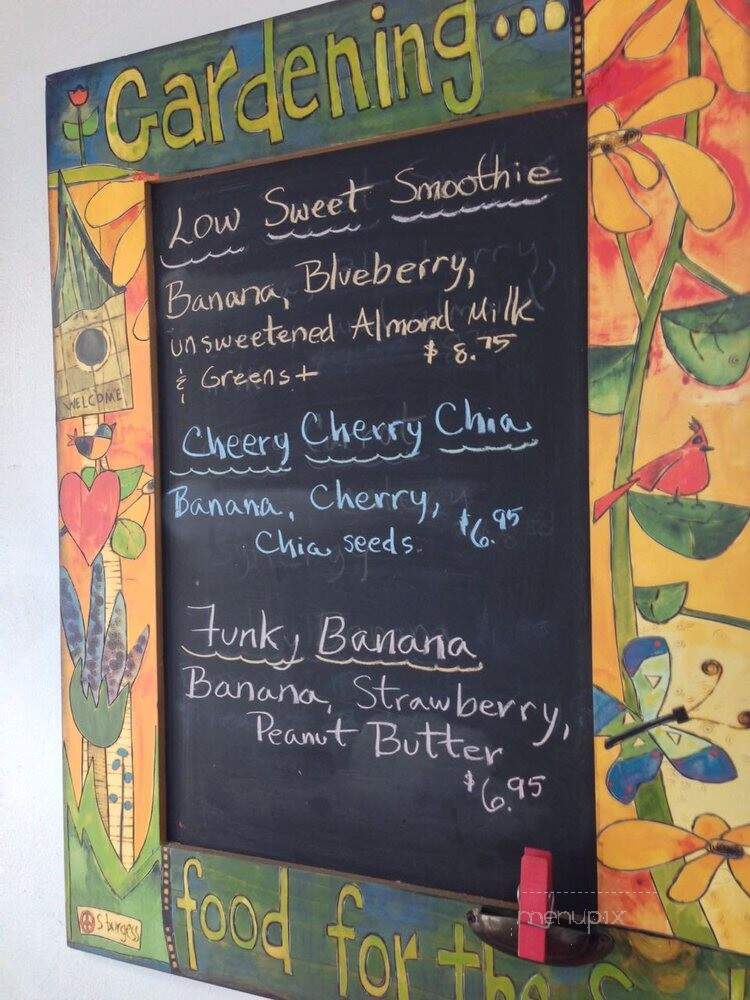 Gardening...
Low Sweet Smoothie
Banana, Blueberry,
unsweetened Almond Milk
$8.75
& Greens+
WELCOME
Cheery Cherry Chia
Banana, Cherry,
$6.95
Chia seeds
Funky Banana
Banana, Strawberry,
Peanut Butter
$6.95
S burgess
food for the
menupix